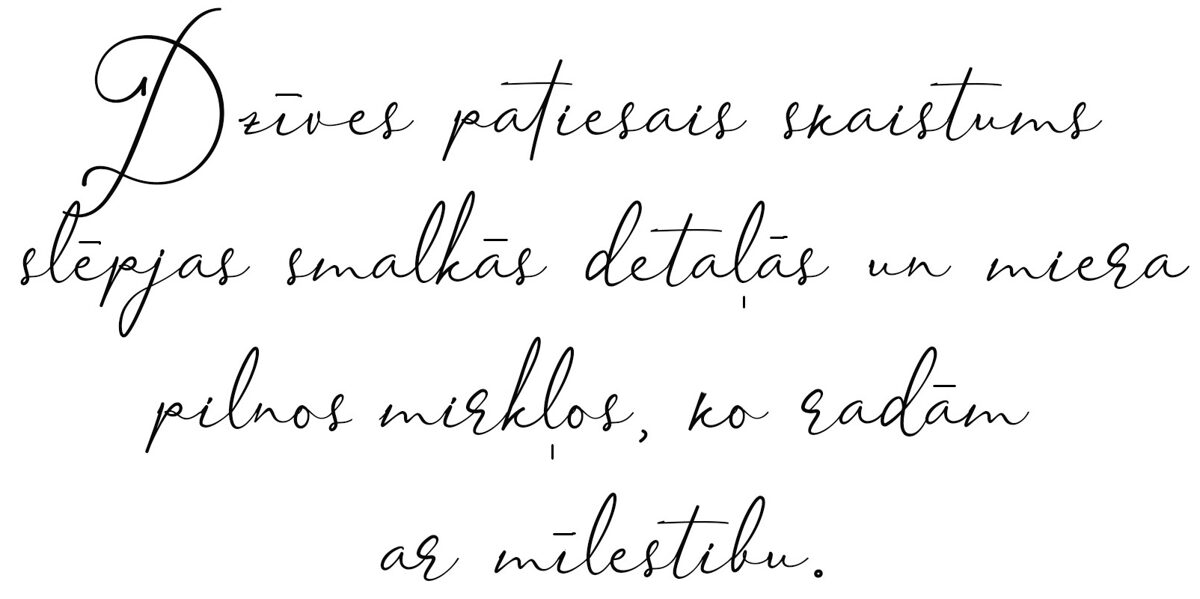 Dzīves patiesais skaistums
slēpjas smalkās detaļās un miera
pilnos mirkļos, ko radām
ar mīlestību.